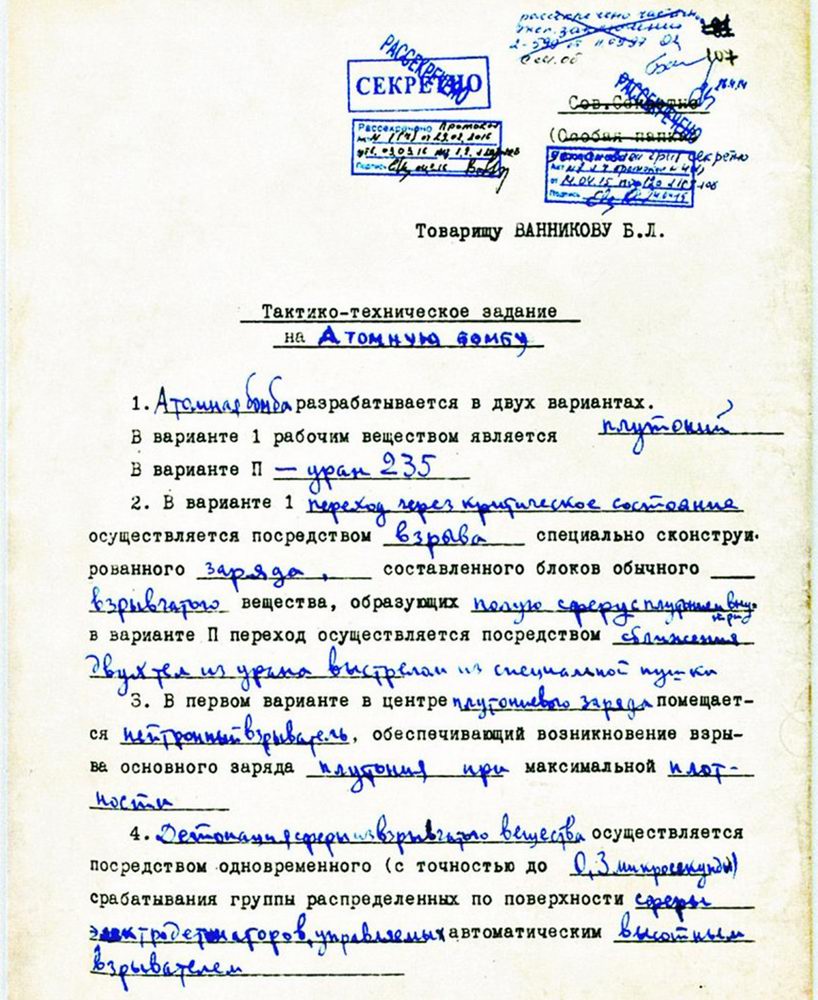 рассекречено частично
107
РАССЕКРЕЧЕНО
СЕКРЕТНО
Рассекречено Протокол
РАССЕКРЕЧЕНО
Сов.Секретно
(Особая папка)
гриф секретно
Товарищу ВАННИКОВУ Б.Л.
Тактико-техническое задание
на Атомную бомбу
1. Атомная бомба разрабатывается в двух вариантах.
В варианте 1 рабочим веществом является плутоний
В варианте П — уран 235
2. В варианте 1 переход через критическое состояние
осуществляется посредством взрыва специально сконструи-
рованного заряда, составленного блоков обычного
взрывчатого вещества, образующих полую сферу с плутонием внутри
в варианте П переход осуществляется посредством сближения
двух тел из урана выстрелом из специальной пушки
3. В первом варианте в центре плутониевого заряда помещает-
ся нейтронный взрыватель, обеспечивающий возникновение взры-
ва основного заряда плутония при максимальной плот-
ности
4. Детонация сферы из взрывчатого вещества осуществляется
посредством одновременного (с точностью до 0,3 микросекунды)
срабатывания группы распределенных по поверхности сферы
электродетонаторов, управляемых автоматическим высотным
взрывателем